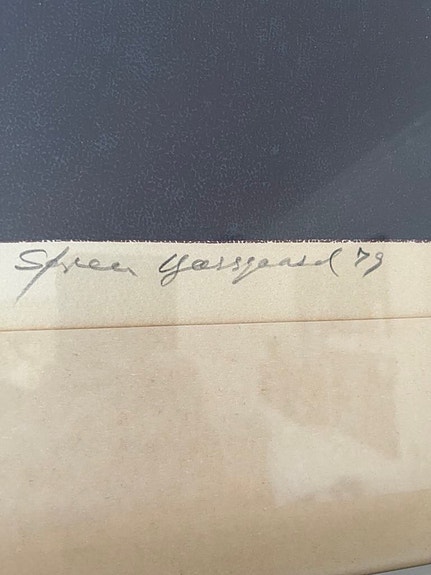 Søren Hersgaard '79